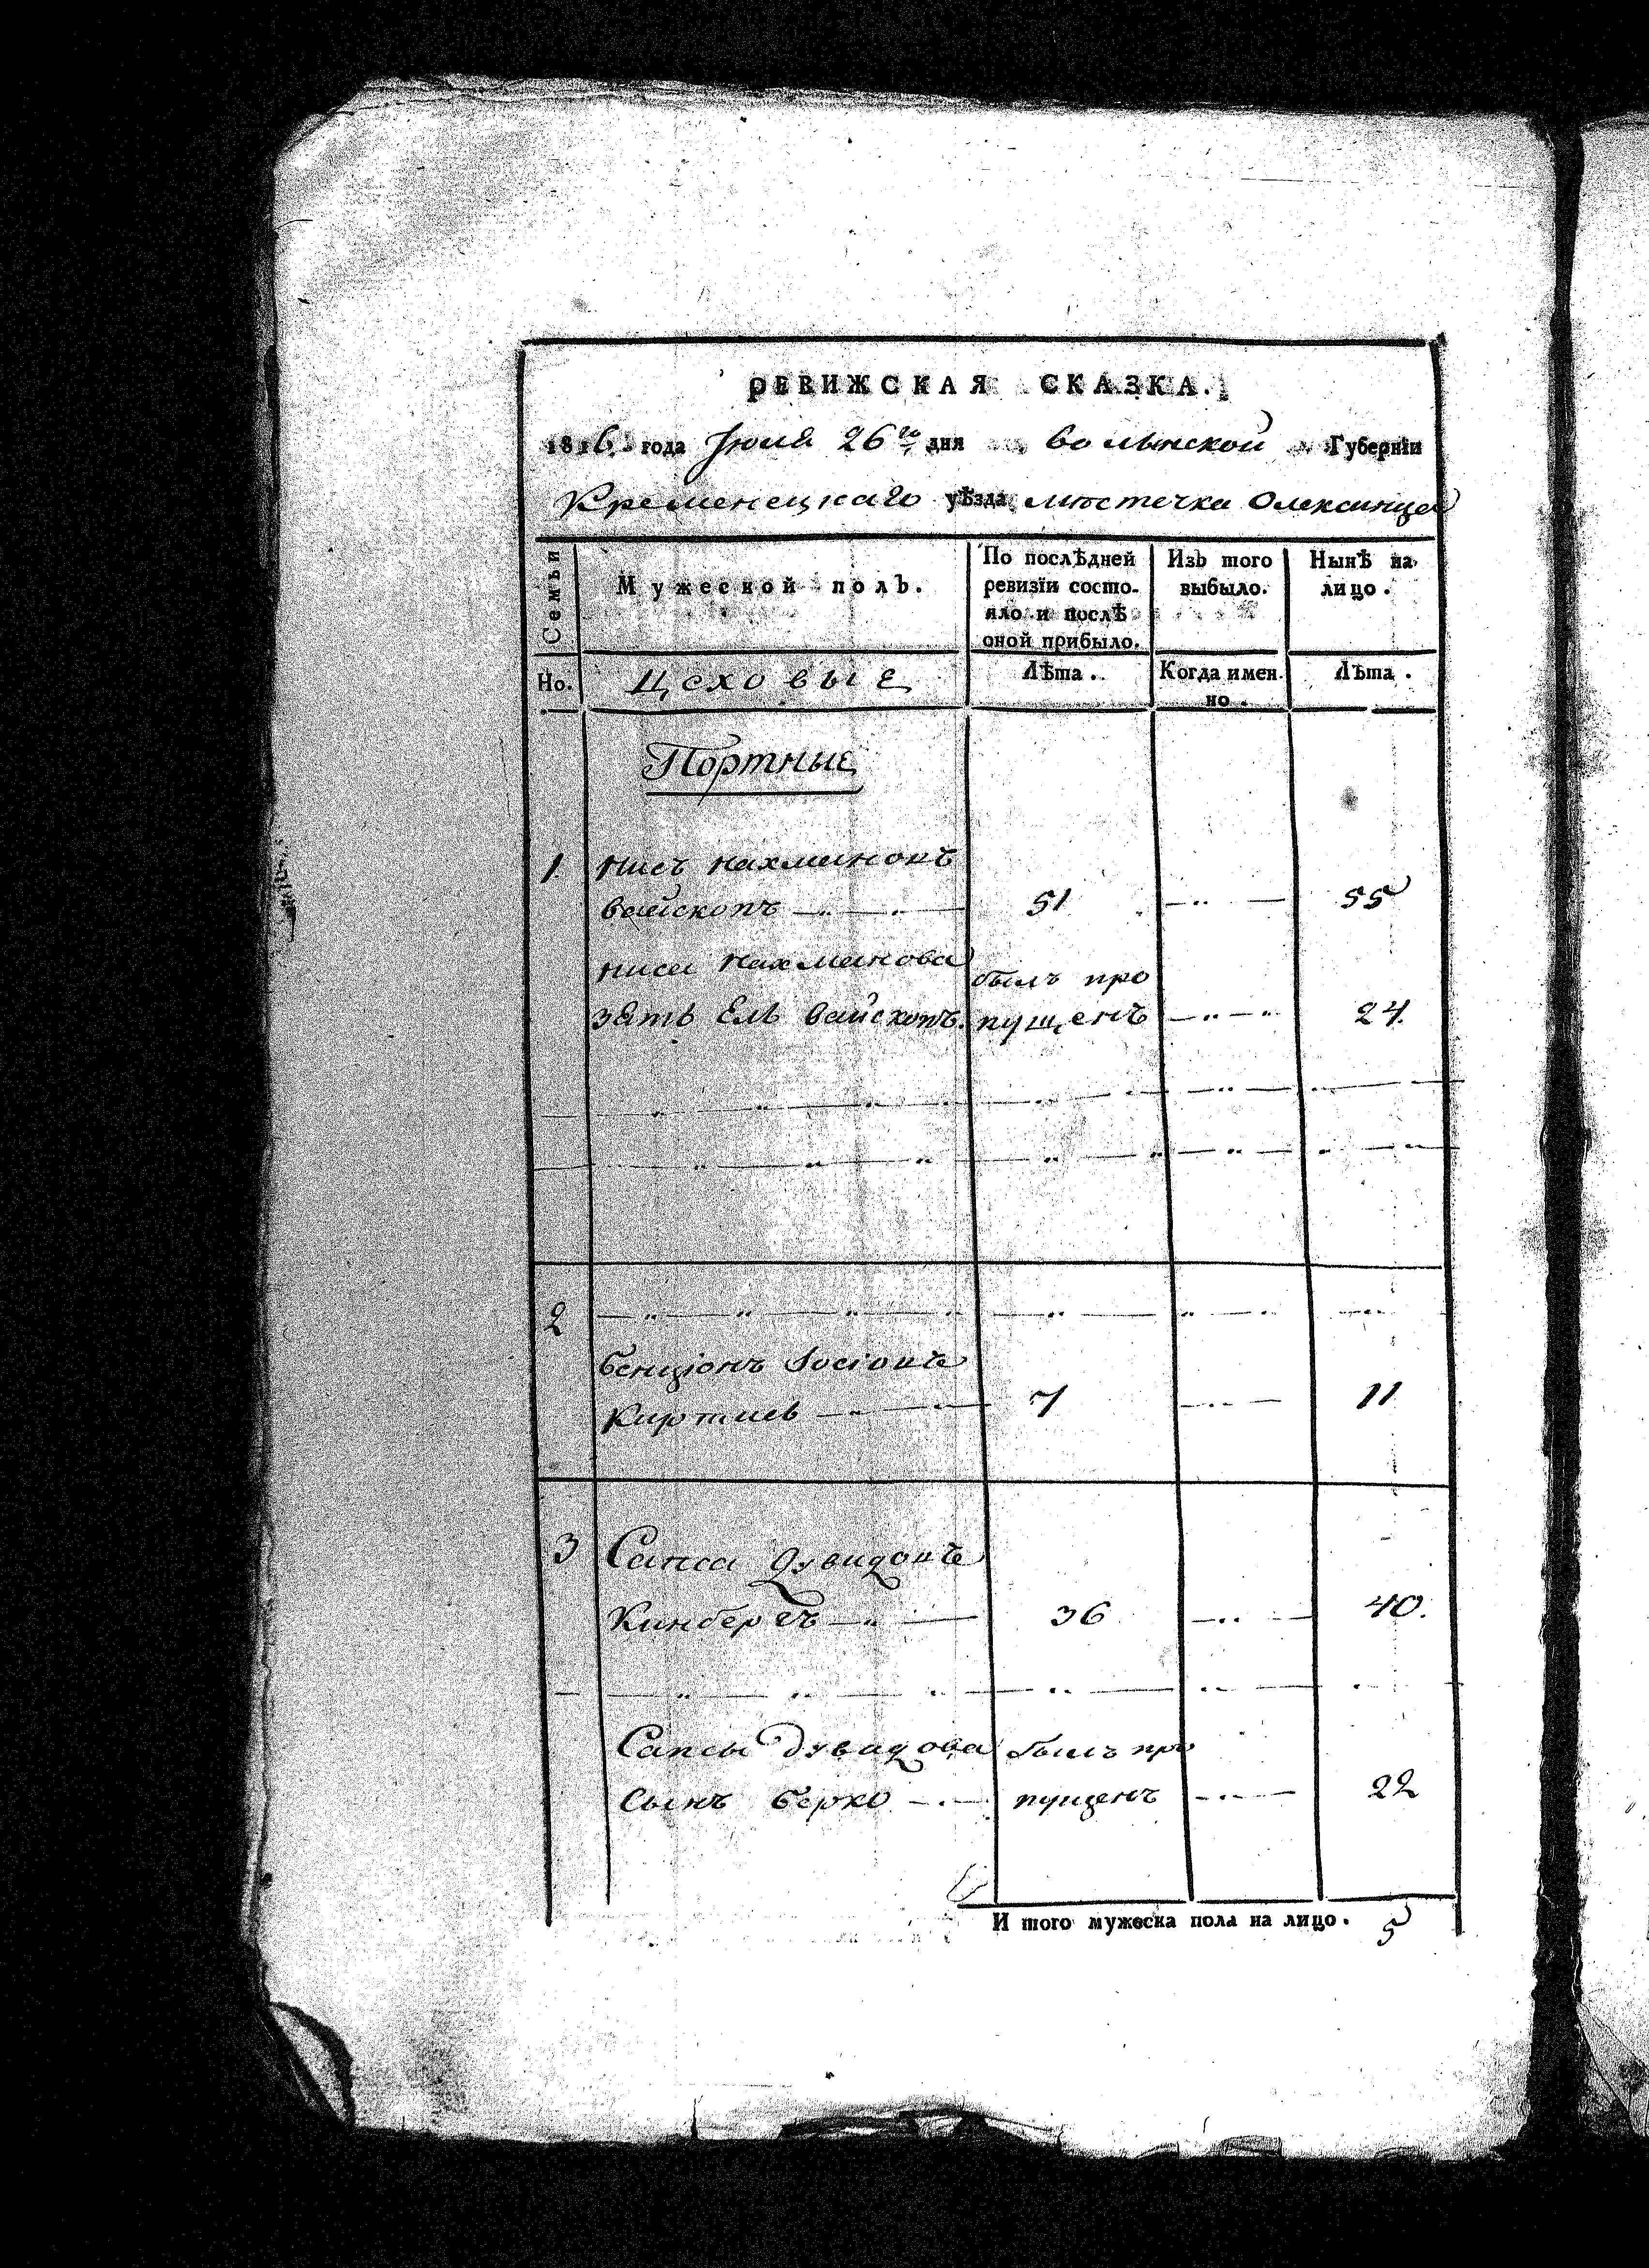 РЕВИЖСКАЯ СКАЗКА.
1816 года Июля 26го дня волынской Губерніи
Кременецкаго уѣзда мѣстечка Олексинца
Семьи
Мужеской полъ.
По послѣдней ревизіи состо-яло и послѣ оной прибыло.
Изъ того выбыло.
Нынѣ на лицо.
Но.
Цеховые
Лѣта.
Когда имен-но.
Лѣта.
Портные
1 Нисъ Нахмановъ
вайскопъ 51 55
Ниса Нахманова былъ про
зять Ель вайскопъ пущенъ 24.
2
бенціонъ Іосіовъ
7 11
3 Сапса Дувидовъ
Кинбергъ 36 40.
Сапсы Дувидова былъ про
сынъ берко пущенъ 22
И того мужеска пола на лицо. 5